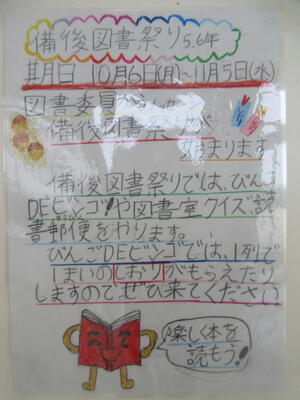 備後図書祭り 5.6年
期日 10月6日(月)~11月5日(水)
図書委員からメッセージ
備後図書祭りが
始まります
備後図書祭りでは、びんご
DEビンゴ!や図書室クイズ、読
書郵便をやります。
びんごDEビンゴでは、1列で
1まいのしおりがもらえたり
しますのでぜひ来てください
楽しく本を
読もう!